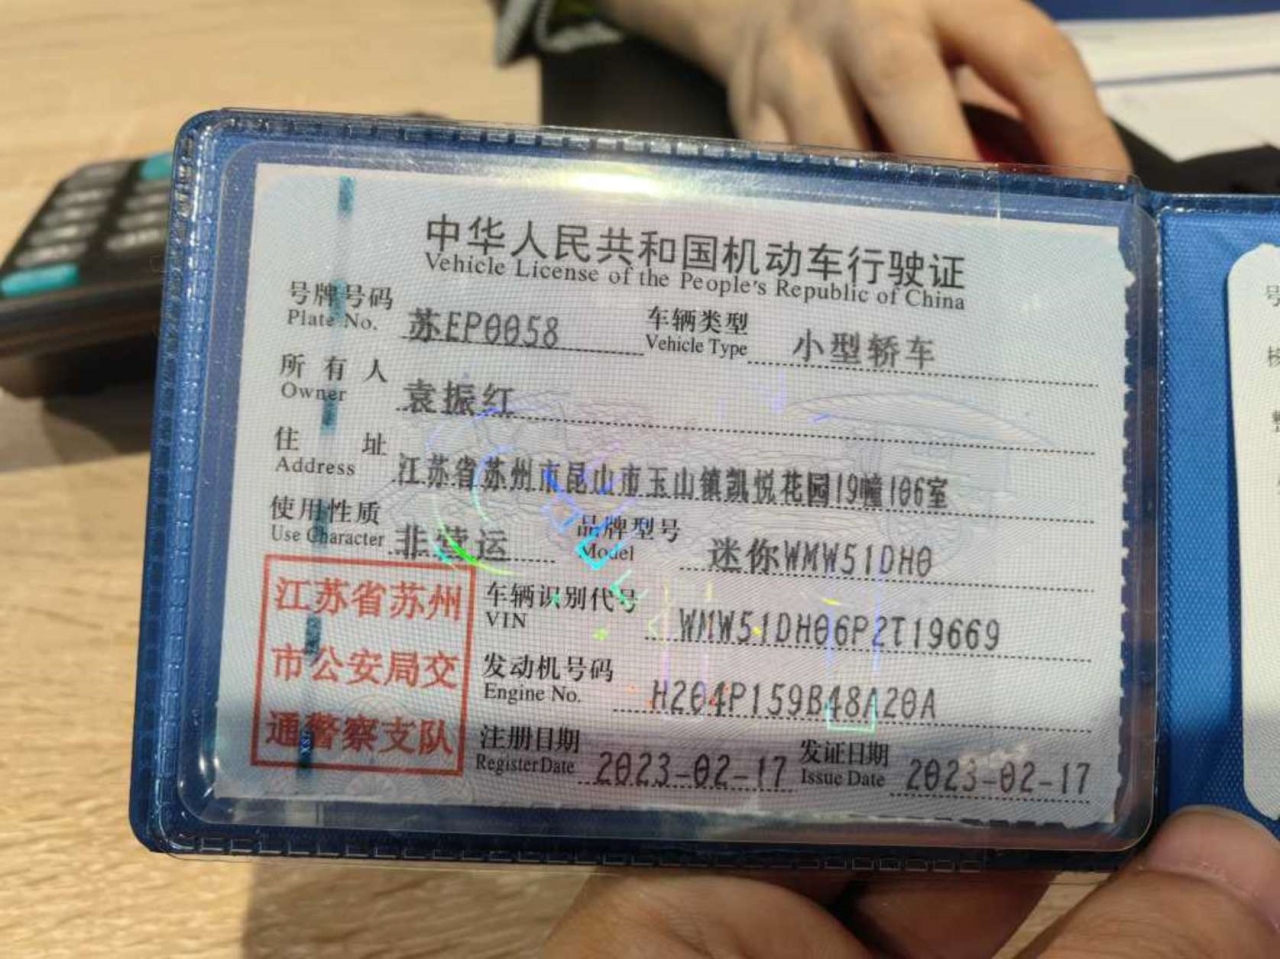 中华人民共和国机动车行驶证
Vehicle License of the People's Republic of China
号牌号码 苏EP0058 车辆类型 小型轿车
Plate No. Vehicle Type
所有人 袁振红
Owner
住址 江苏省苏州市昆山市玉山镇凯悦花园19幢106室
Address
使用性质 非营运 品牌型号 迷你WMW51DH0
Use Character Model
江苏省苏州
市公安局交
通警察支队
车辆识别代号 WMW51DH06P2T19669
VIN
发动机号码 H204P159B48A20A
Engine No.
注册日期 2023-02-17 发证日期 2023-02-17
Register Date Issue Date
号